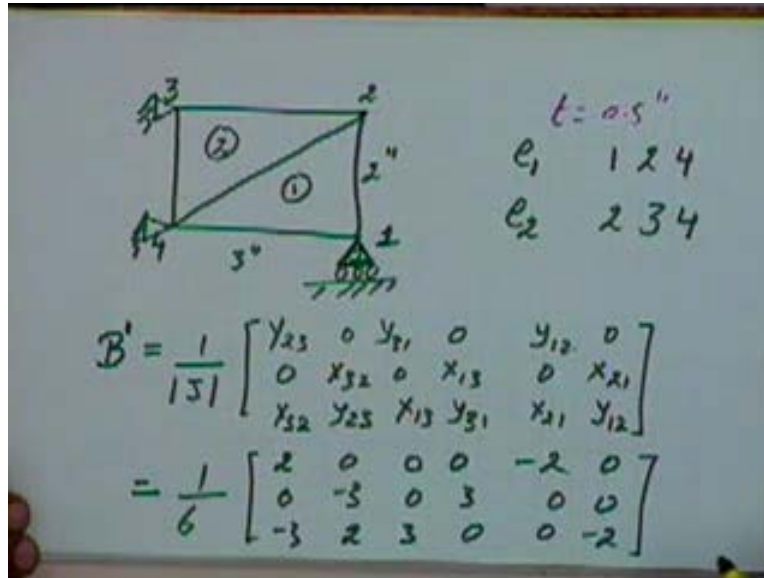 3 2
② ① 2"
4 3" 1
t = 0.5"
e₁ 1 2 4
e₂ 2 3 4
B¹ = 1/|J| [ y₂₃ 0 y₃₁ 0 y₁₂ 0
0 x₃₂ 0 x₁₃ 0 x₂₁
x₃₂ y₂₃ x₁₃ y₃₁ x₂₁ y₁₂ ]
= 1/6 [ 2 0 0 0 -2 0
0 -3 0 3 0 0
-3 2 3 0 0 -2 ]